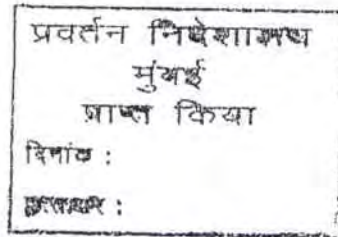 प्रवर्तन निदेशालय
मुंबई
प्राप्त किया
दिनांक :
हस्ताक्षर :